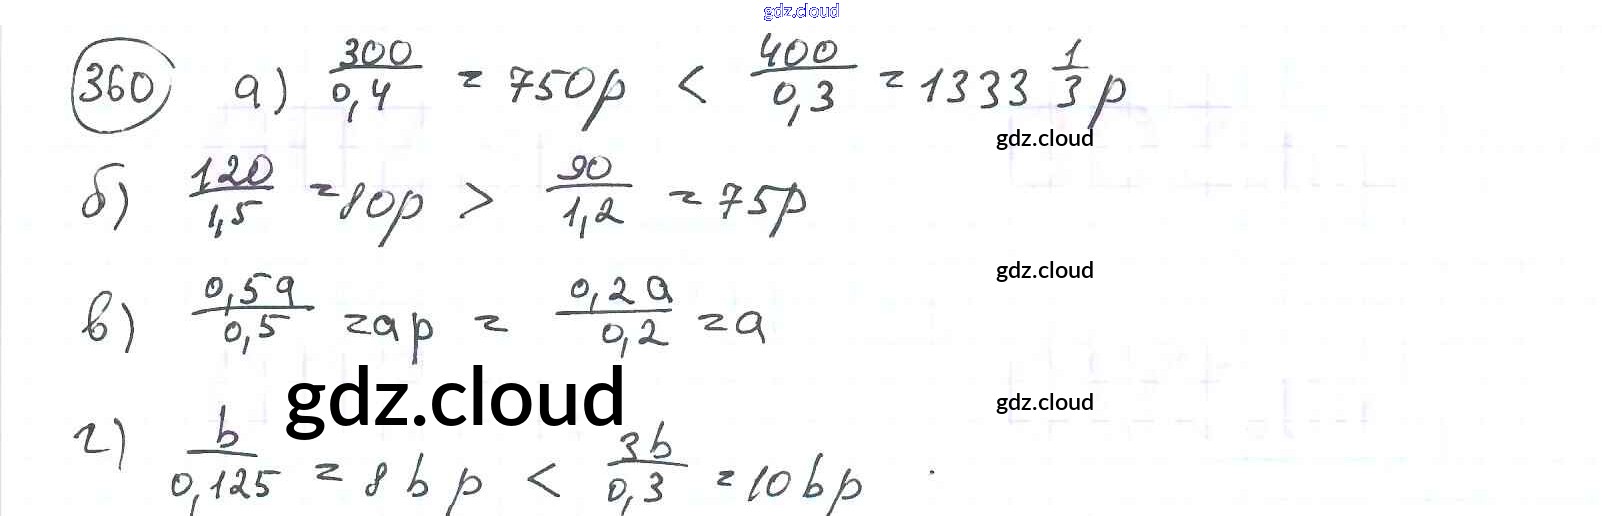 gdz.cloud
360 а) 300/0,4 = 750р < 400/0,3 = 1333 1/3 р
gdz.cloud
б) 120/1,5 = 80р > 90/1,2 = 75р
gdz.cloud
в) 0,5a/0,5 = aр = 0,2a/0,2 = a
gdz.cloud
gdz.cloud
г) b/0,125 = 8bр < 3b/0,3 = 10bр